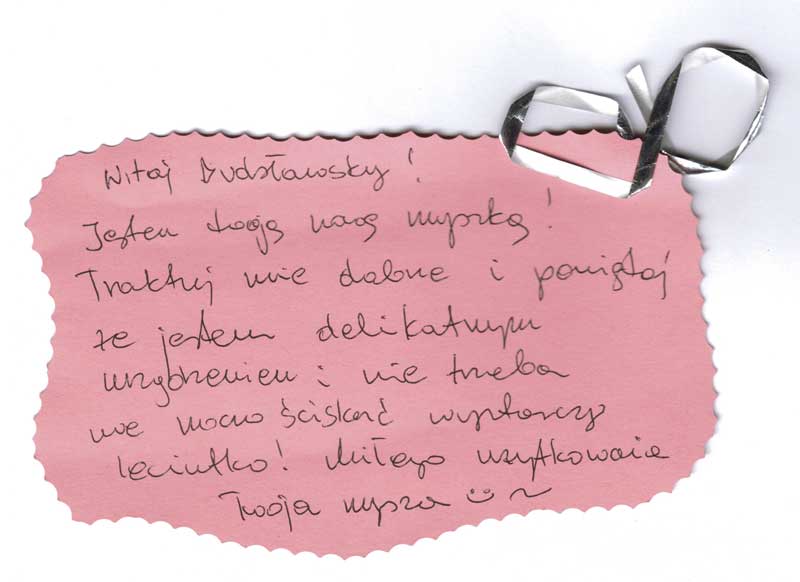 Witaj Dudsławsky!
Jestem twoją nową myszką!
Traktuj mnie dobrze i pamiętaj
że jestem delikatnym
urządzeniem i nie trzeba
mnie mocno ściskać wystarczy
leciutko! Miłego użytkowania
Twoja mysza ☺~